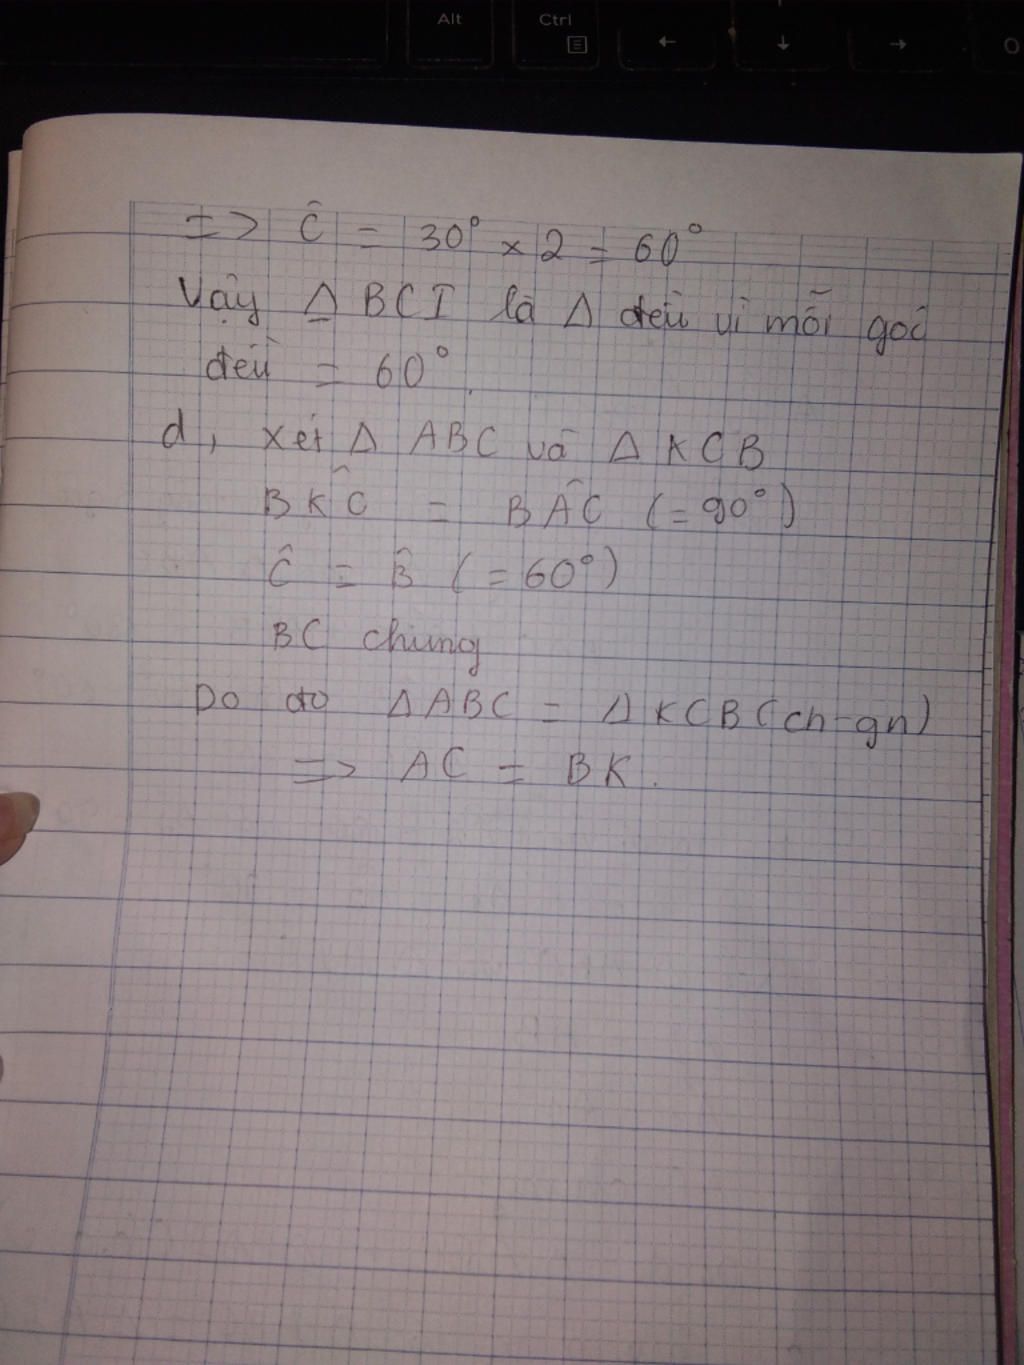 Alt Ctrl ← ↓ →
=> Ĉ = 30° × 2 = 60°
Vậy Δ BCI là Δ đều vì mỗi góc
đều = 60°.
d, Xét Δ ABC và Δ KCB
BK̂C = BÂC (= 90°)
Ĉ = B̂ (= 60°)
BC chung
Do đó ΔABC = ΔKCB (ch-gn)
=> AC = BK.